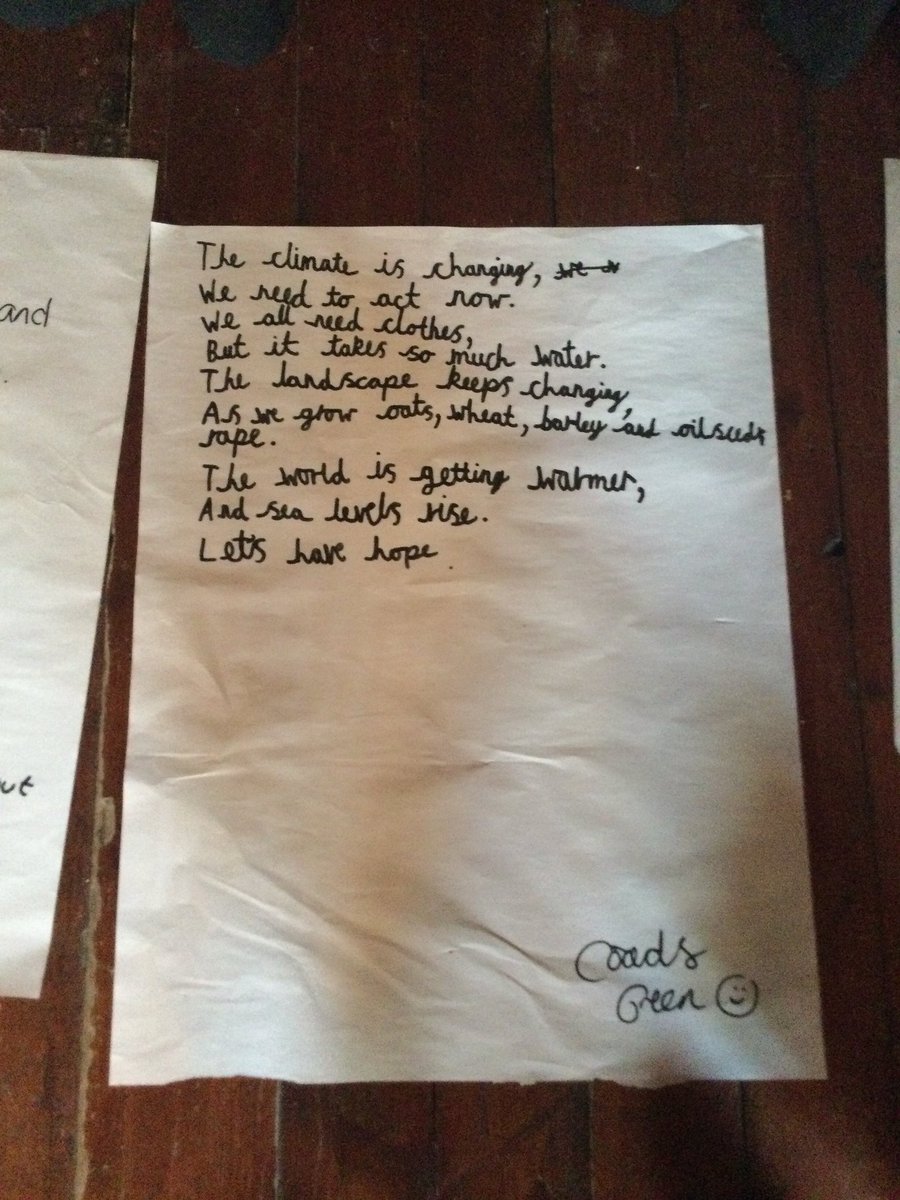 The climate is changing,
We need to act now.
We all need clothes,
But it takes so much water.
The landscape keeps changing,
As we grow oats, wheat, barley and oilseeds
rape.
The world is getting warmer,
And sea levels rise.
Let's have hope.
Coads
Green
and
ut